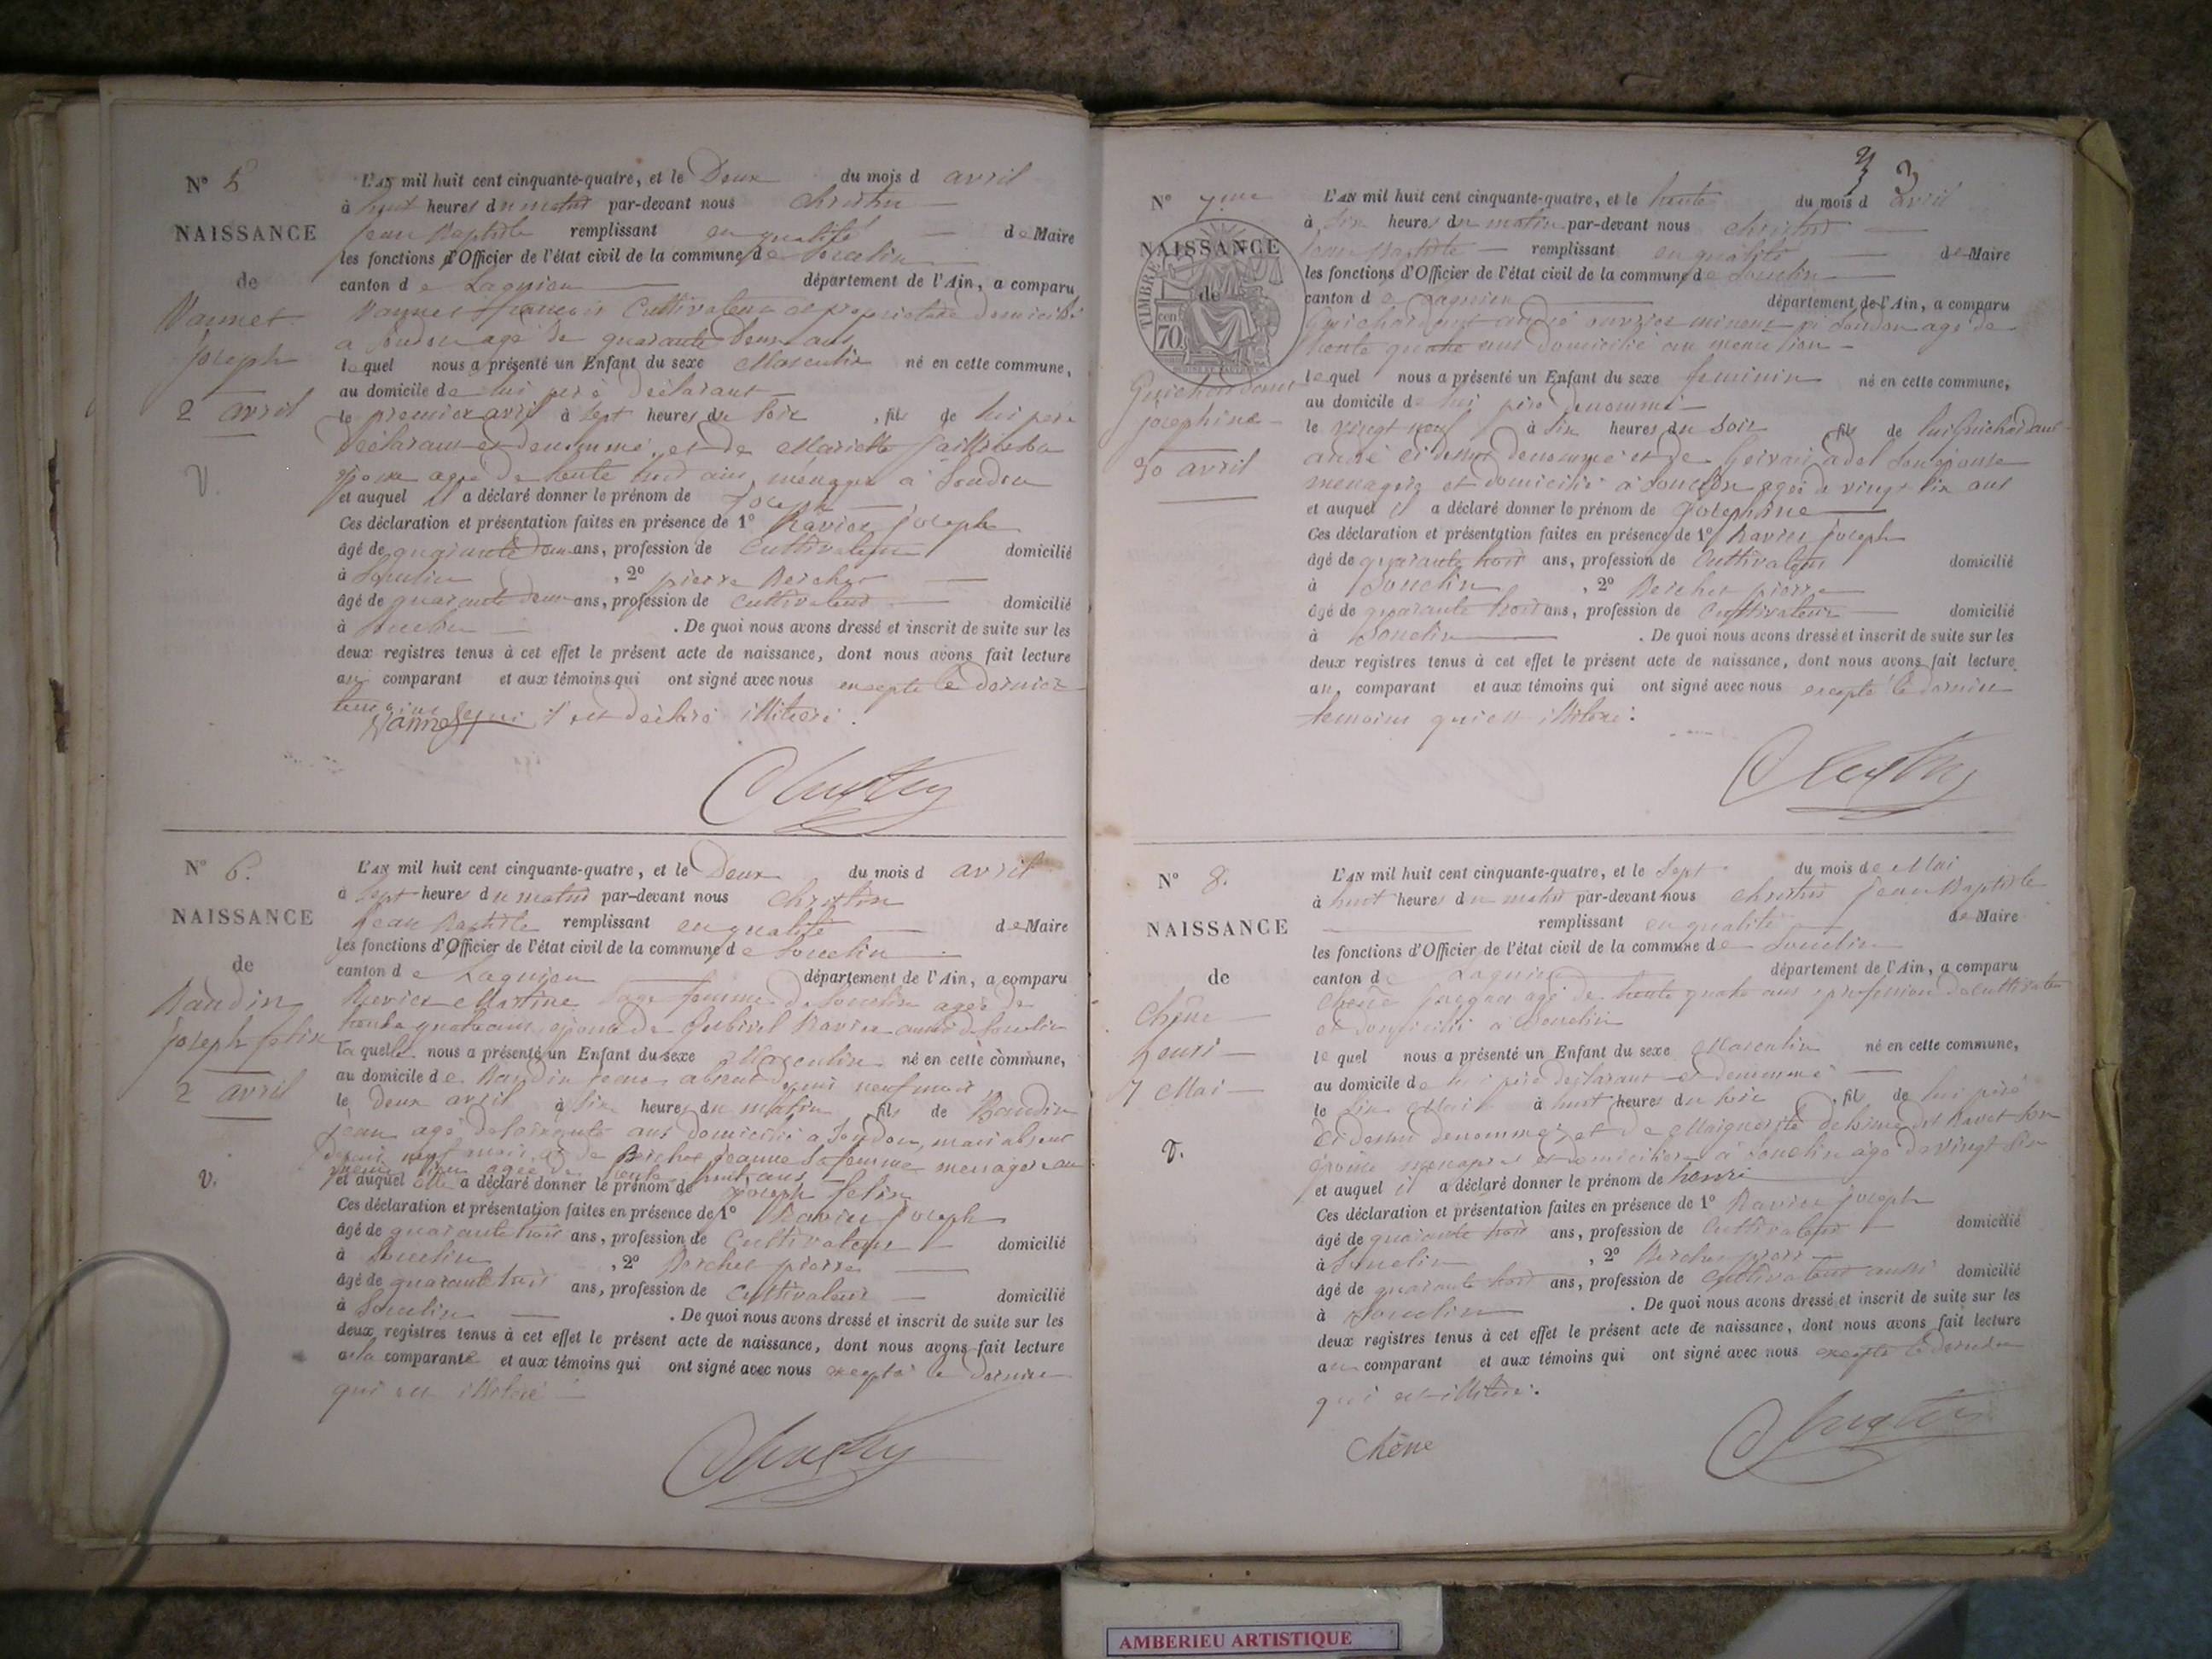 N° 5
NAISSANCE
de
Vannet
joseph
2 avril
V.
L'AN mil huit cent cinquante-quatre, et le Deux du mois d avril
à huit heures du matin par-devant nous Christin
jean Baptiste remplissant en qualité de Maire
les fonctions d'Officier de l'état civil de la commune de Souclin
canton de Lagnieu département de l'Ain, a comparu
Vannet françois Cultivateur et propriétaire domicilié
a Soudon agé de quarante Deux ans
lequel nous a présenté un Enfant du sexe Masculin né en cette commune,
au domicile de lui père déclarant
le premier avril à sept heures du soir, fils de lui père
déclarant et denommé, et de Mariette
épouse agée de trente huit ans, ménagère a Soudon
et auquel il a déclaré donner le prénom de Joseph
Ces déclaration et présentation faites en présence de 1° Ravier joseph
âgé de quarante deux ans, profession de Cultivateur domicilié
à Souclin, 2° pierre Bercher
âgé de quarante deux ans, profession de cultivateur domicilié
à Souclin. De quoi nous avons dressé et inscrit de suite sur les
deux registres tenus à cet effet le présent acte de naissance, dont nous avons fait lecture
au comparant et aux témoins qui ont signé avec nous excepté le dernier
temoins qui s'est déclaré illitéré.
Vannet
Christin
N° 6.
NAISSANCE
de
Baudin
joseph felix
2 avril
V.
L'AN mil huit cent cinquante-quatre, et le Deux du mois d avril
à Sept heures du matin par-devant nous Christin
Jean Baptiste remplissant en qualité de Maire
les fonctions d'Officier de l'état civil de la commune de Souclin
canton de Lagnieu département de l'Ain, a comparu
Martine Sage femme de Souclin agée de
trente quatre ans épouse de Ravier aussi de Souclin
laquelle nous a présenté un Enfant du sexe Masculin né en cette commune,
au domicile de Baudin jean absent depuis neuf mois
le deux avril à six heures du matin, fils de Baudin
jean agé de cinquante ans domicilié a Soudon, mais absent
depuis neuf mois, et de Bercher jeanne Sa femme menagere au
même lieu agée de trente huit ans
et auquel elle a déclaré donner le prénom de joseph felix
Ces déclaration et présentation faites en présence de 1° Ravier joseph
âgé de quarante trois ans, profession de Cultivateur domicilié
à Souclin, 2° Bercher pierre
âgé de quarante trois ans, profession de Cultivateur domicilié
à Souclin. De quoi nous avons dressé et inscrit de suite sur les
deux registres tenus à cet effet le présent acte de naissance, dont nous avons fait lecture
a la comparante et aux témoins qui ont signé avec nous excepté le dernier
qui est illitéré
Christin
3 3
N° 7me
NAISSANCE
de
TIMBRE
70 cen
Guichardant
josephine
30 avril
L'AN mil huit cent cinquante-quatre, et le trente du mois d avril
à six heures du matin par-devant nous Christin
Jean Baptiste remplissant en qualité de Maire
les fonctions d'Officier de l'état civil de la commune de Souclin
canton de Lagnieu département de l'Ain, a comparu
Guichardant andré ouvrier mineur a Soudon agé de
trente quatre ans domicilié au meme lieu
lequel nous a présenté un Enfant du sexe feminin né en cette commune,
au domicile de lui père denommé
le vingt neuf à six heures du soir fils de lui Guichardant
andré ci dessus denommé et de adel son épouse
menagère et domicilié a Souclin agée de vingt six ans
et auquel il a déclaré donner le prénom de Josephine
Ces déclaration et présentation faites en présence de 1° Ravier joseph
âgé de quarante trois ans, profession de Cultivateur domicilié
à Souclin, 2° Bercher pierre
âgé de quarante trois ans, profession de Cultivateur domicilié
à Souclin. De quoi nous avons dressé et inscrit de suite sur les
deux registres tenus à cet effet le présent acte de naissance, dont nous avons fait lecture
au comparant et aux témoins qui ont signé avec nous excepté le dernier
temoins qui est illitéré.
Christin
N° 8.
NAISSANCE
de
Chêne
henri
7 Mai
V.
L'AN mil huit cent cinquante-quatre, et le Sept du mois de Mai
à huit heures du matin par-devant nous Christin jean Baptiste
remplissant en qualité de Maire
les fonctions d'Officier de l'état civil de la commune de Souclin
canton de Lagnieu département de l'Ain, a comparu
Chêne jacques agé de trente quatre ans profession de cultivateur
et domicilié a Souclin
lequel nous a présenté un Enfant du sexe Masculin né en cette commune,
au domicile de lui père déclarant et denommé
le six Mai à huit heures du soir, fils de lui père
ci dessus denommé, et de Marguerite dit Ravet son
épouse menagère et domiciliée a Souclin agée de vingt six
et auquel il a déclaré donner le prénom de henri
Ces déclaration et présentation faites en présence de 1° Ravier joseph
âgé de quarante trois ans, profession de Cultivateur domicilié
à Souclin, 2° Bercher pierre
âgé de quarante trois ans, profession de Cultivateur aussi domicilié
à Souclin. De quoi nous avons dressé et inscrit de suite sur les
deux registres tenus à cet effet le présent acte de naissance, dont nous avons fait lecture
au comparant et aux témoins qui ont signé avec nous excepté le dernier
qui est illitéré.
Chêne
Christin
AMBERIEU ARTISTIQUE